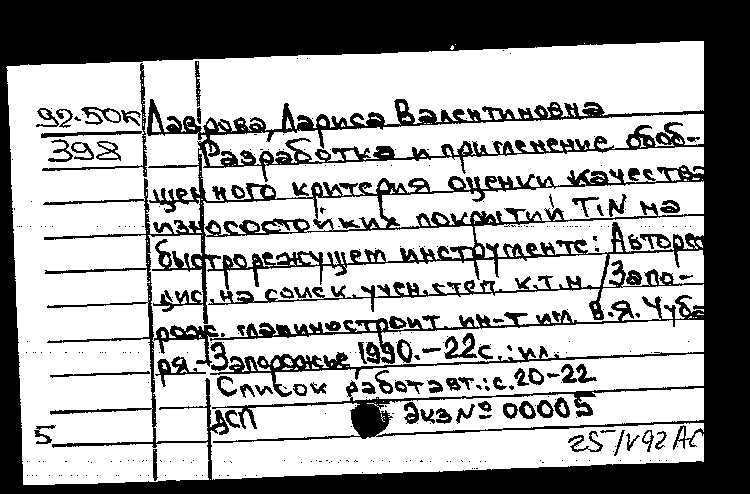 92-50к Лаврова, Лариса Валентиновна
398 Разработка и применение обоб-
щенного критерия оценки качества
износостойких покрытий TiN на
быстрорежущем инструменте: Авторе
дис. на соиск. учен. степ. к.т.н. / Запо-
рож. машиностроит. ин-т им. В.Я. Чуба
ря.-Запорожье, 1990.-22с.: ил.
Список работ авт.: с.20-22
ДСП Экз № 00005
5
25/IV92 АС